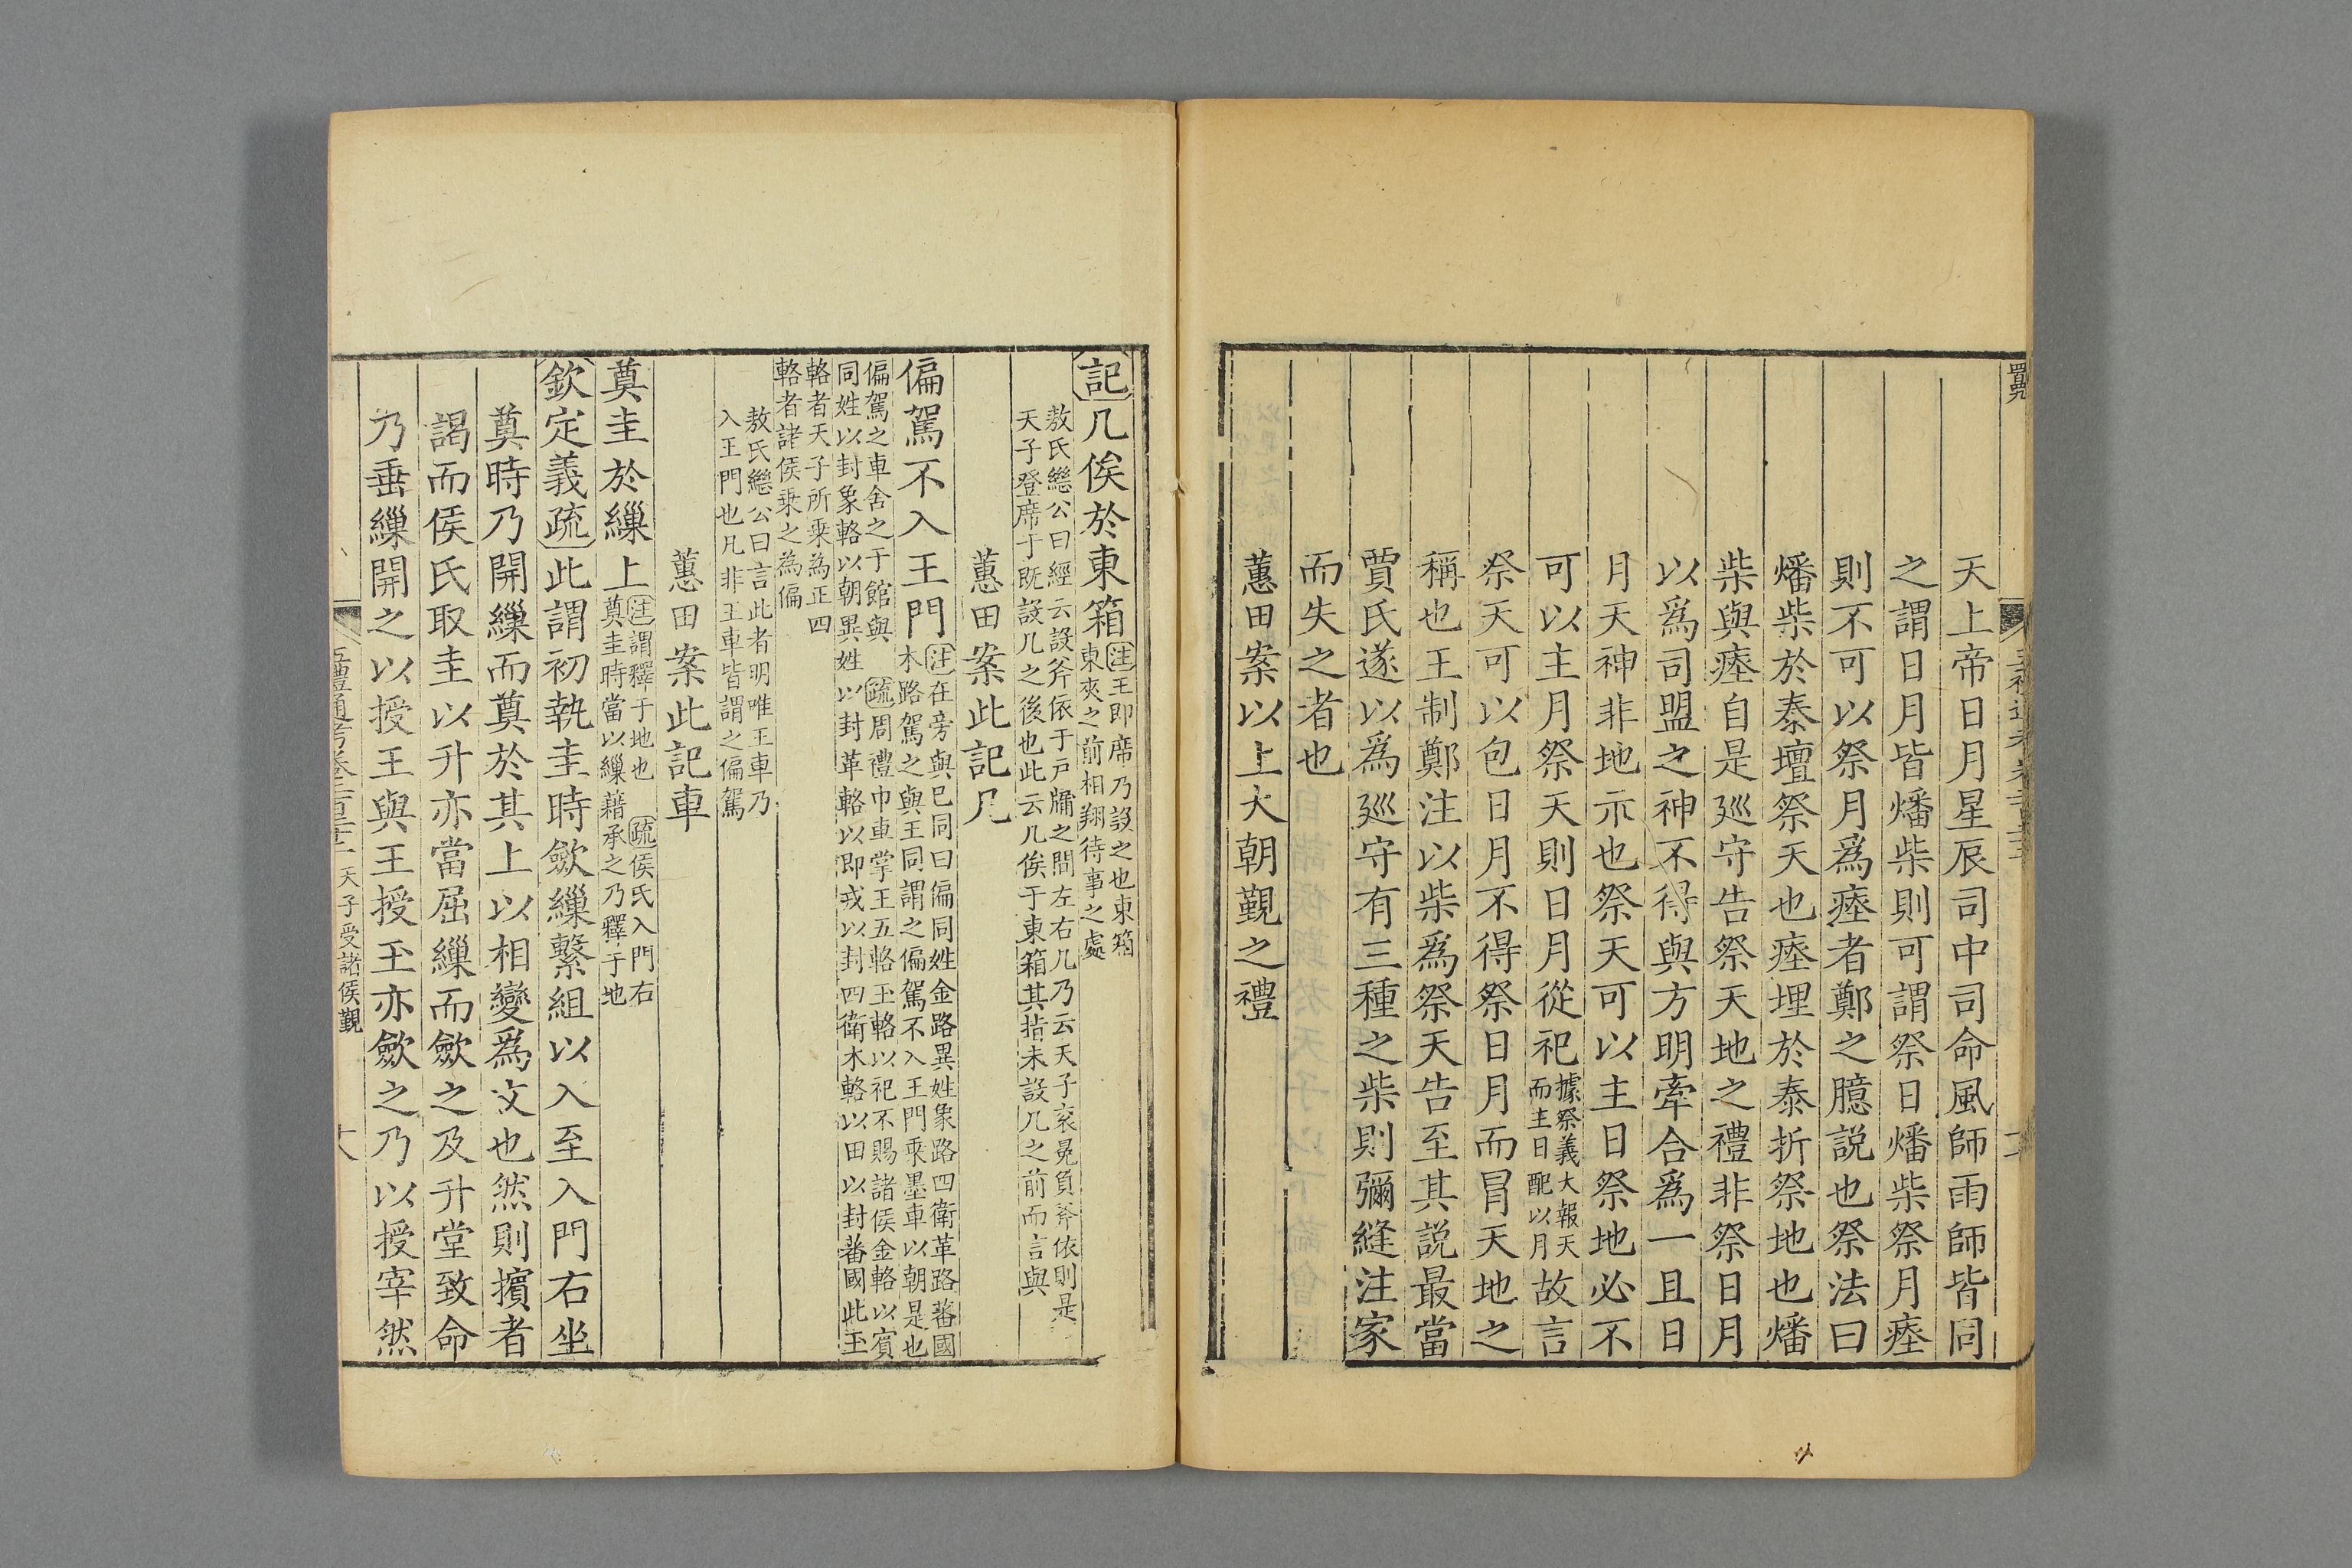 天上帝日月星辰司中司命風師雨師皆同
之謂日月皆燔柴則可謂祭日燔柴祭月瘞
則不可以祭月爲瘞者鄭之臆説也祭法曰
燔柴於泰壇祭天也瘞埋於泰折祭地也燔
柴與瘞自是廵守告祭天地之禮非祭日月
以爲司盟之神不得與方明牽合爲一且日
月天神非地示也祭天可以主日祭地必不
可以主月祭天則日月從祀據祭義大報天而主日配以月故言
祭天可以包日月不得祭日月而冒天地之
稱也王制鄭注以柴爲祭天告至其説最當
賈氏遂以爲廵守有三種之柴則彌縫注家
而失之者也
蕙田案以上大朝覲之禮
記几俟於東箱注王即席乃設之也東箱東夾之前相翔待事之處
敖氏繼公曰經云設斧依于戸牖之間左右几乃云天子衮冕負斧依則是
天子登席于既設几之後也此云几俟于東箱其指未設几之前而言與
蕙田案此記几
偏駕不入王門注在旁與已同曰偏同姓金路異姓象路四衛革路蕃國木路駕之與王同謂之偏駕不入王門乘墨車以朝是也
偏駕之車舍之于館與 疏周禮巾車掌王五輅玉輅以祀不賜諸侯金輅以賓
同姓以封象輅以朝異姓以封革輅以即戎以封四衛木輅以田以封蕃國此五
輅者天子所乗為正四
輅者諸侯乗之為偏
敖氏繼公曰言此者明唯王車乃
入王門也凡非王車皆謂之偏駕
蕙田案此記車
奠圭於繅上注謂釋于地也 疏侯氏入門右奠圭時當以繅藉承之乃釋于地
欽定義疏此謂初執圭時歛繅繫組以入至入門右坐
奠時乃開繅而奠於其上以相變爲文也然則擯者
謁而侯氏取圭以升亦當屈繅而歛之及升堂致命
乃垂繅開之以授王與王授玉亦歛之乃以授宰然
天子受諸侯覲